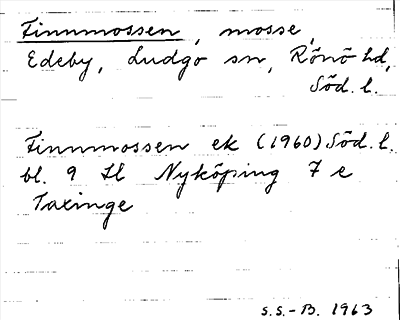 Finnmossen, mosse,
Edeby, Ludgo sn, Rönö hd,
Söd. l.
Finnmossen ek (1960) Söd. l.
bl. 9 Il Nyköping 7 e
Taxinge
S.S.-B. 1963